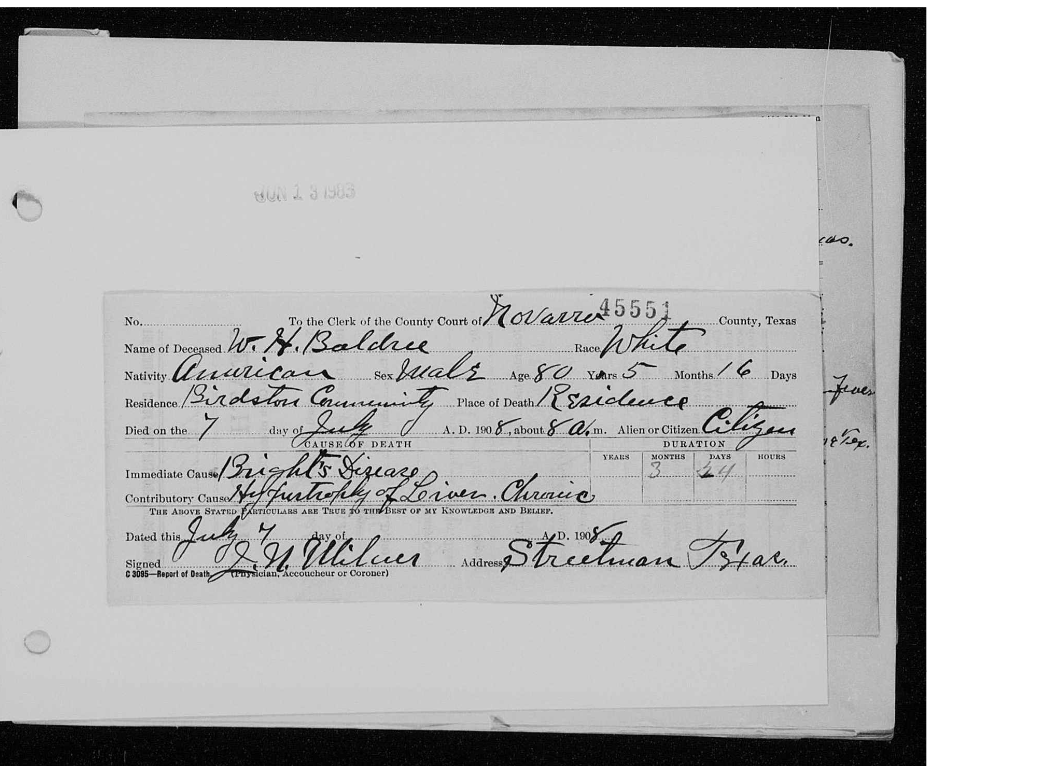 JUN 13 1983
as.
45551
No. To the Clerk of the County Court of Navarro County, Texas
Name of Deceased W. H. Baldree Race White
Nativity American Sex Male Age 80 Years 5 Months 16 Days
Fever
Residence Birdston Community Place of Death Residence
Died on the 7 day of July A. D. 1908, about 8 a. m. Alien or Citizen Citizen
Tex.
CAUSE OF DEATH DURATION
YEARS MONTHS DAYS HOURS
Immediate Cause Bright's Disease 3 24
Contributory Cause Hypertrophy of Liver. Chronic
THE ABOVE STATED PARTICULARS ARE TRUE TO THE BEST OF MY KNOWLEDGE AND BELIEF.
Dated this July 7 day of A. D. 1908
Signed J. N. Milner Address Streetman Texas.
C 3085—Report of Death (Physician, Accoucheur or Coroner)